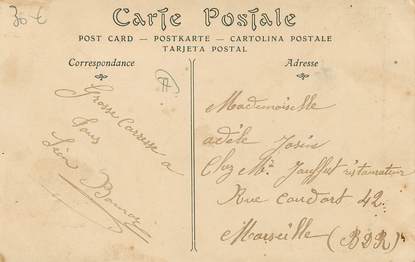 36 €
Carte Postale
POST CARD — POSTKARTE — CARTOLINA POSTALE
TARJETA POSTAL
Correspondance
Adresse
Grosse Caresse a
tous
Léon
Mademoiselle
adèle Josin
Chez Mr Jauffret restaurateur
Rue Condort 42
Marseille (BDR)